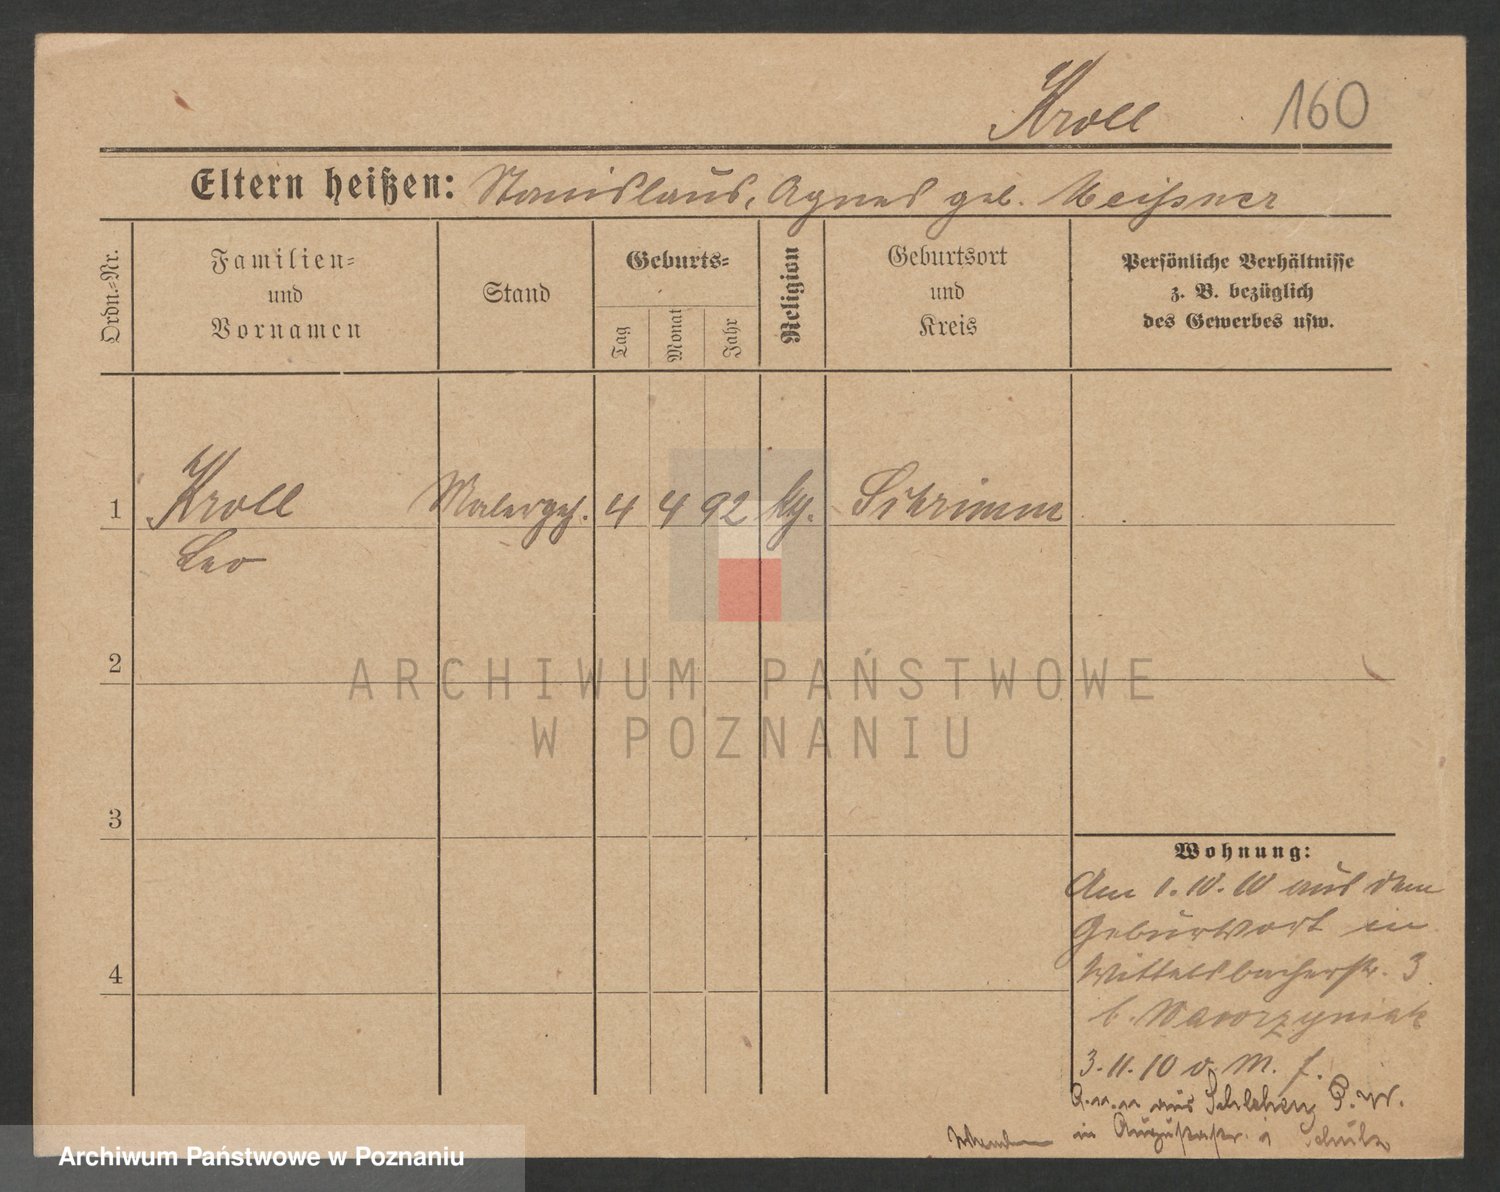 Kroll 160
Eltern heißen: Stanislaus, Agnes geb. Meißner
Ordn.-Nr.
Familien-
und
Vornamen
Stand
Geburts-
Tag
Monat
Jahr
Religion
Geburtsort
und
Kreis
Persönliche Verhältnisse
z. B. bezüglich
des Gewerbes usw.
1 Kroll Malergeh. 4 4 92 Schrimm
Leo
2
ARCHIWUM PAŃSTWOWE
W POZNANIU
3
4
Wohnung:
Am 1.10.10 aus dem
Geburtsort in
Wittelsbacherstr. 3
b. Wawrzyniak
3.11.10 v. M. f.
aus P. W.
in Augustastr. Schulz
Archiwum Państwowe w Poznaniu